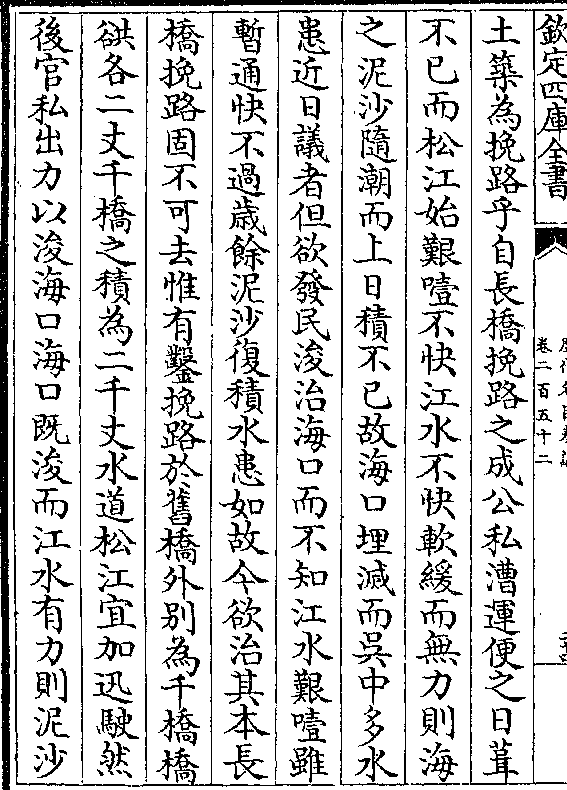 欽定四庫全書
卷二百五十二
土築為挽路乎自長橋挽路之成公私漕運便之日葺
不已而松江始艱噎不快江水不快軟緩而無力則海
之泥沙隨潮而上日積不已故海口埋減而吳中多水
患近日議者但欲發民浚治海口而不知江水艱噎雖
暫通快不過歲餘泥沙復積水患如故今欲治其本長
橋挽路固不可去惟有鑿挽路於舊橋外別為千橋橋
谼各二丈千橋之積為二千丈水道松江宜加迅駛然
後官私出力以浚海口海口既浚而江水有力則泥沙